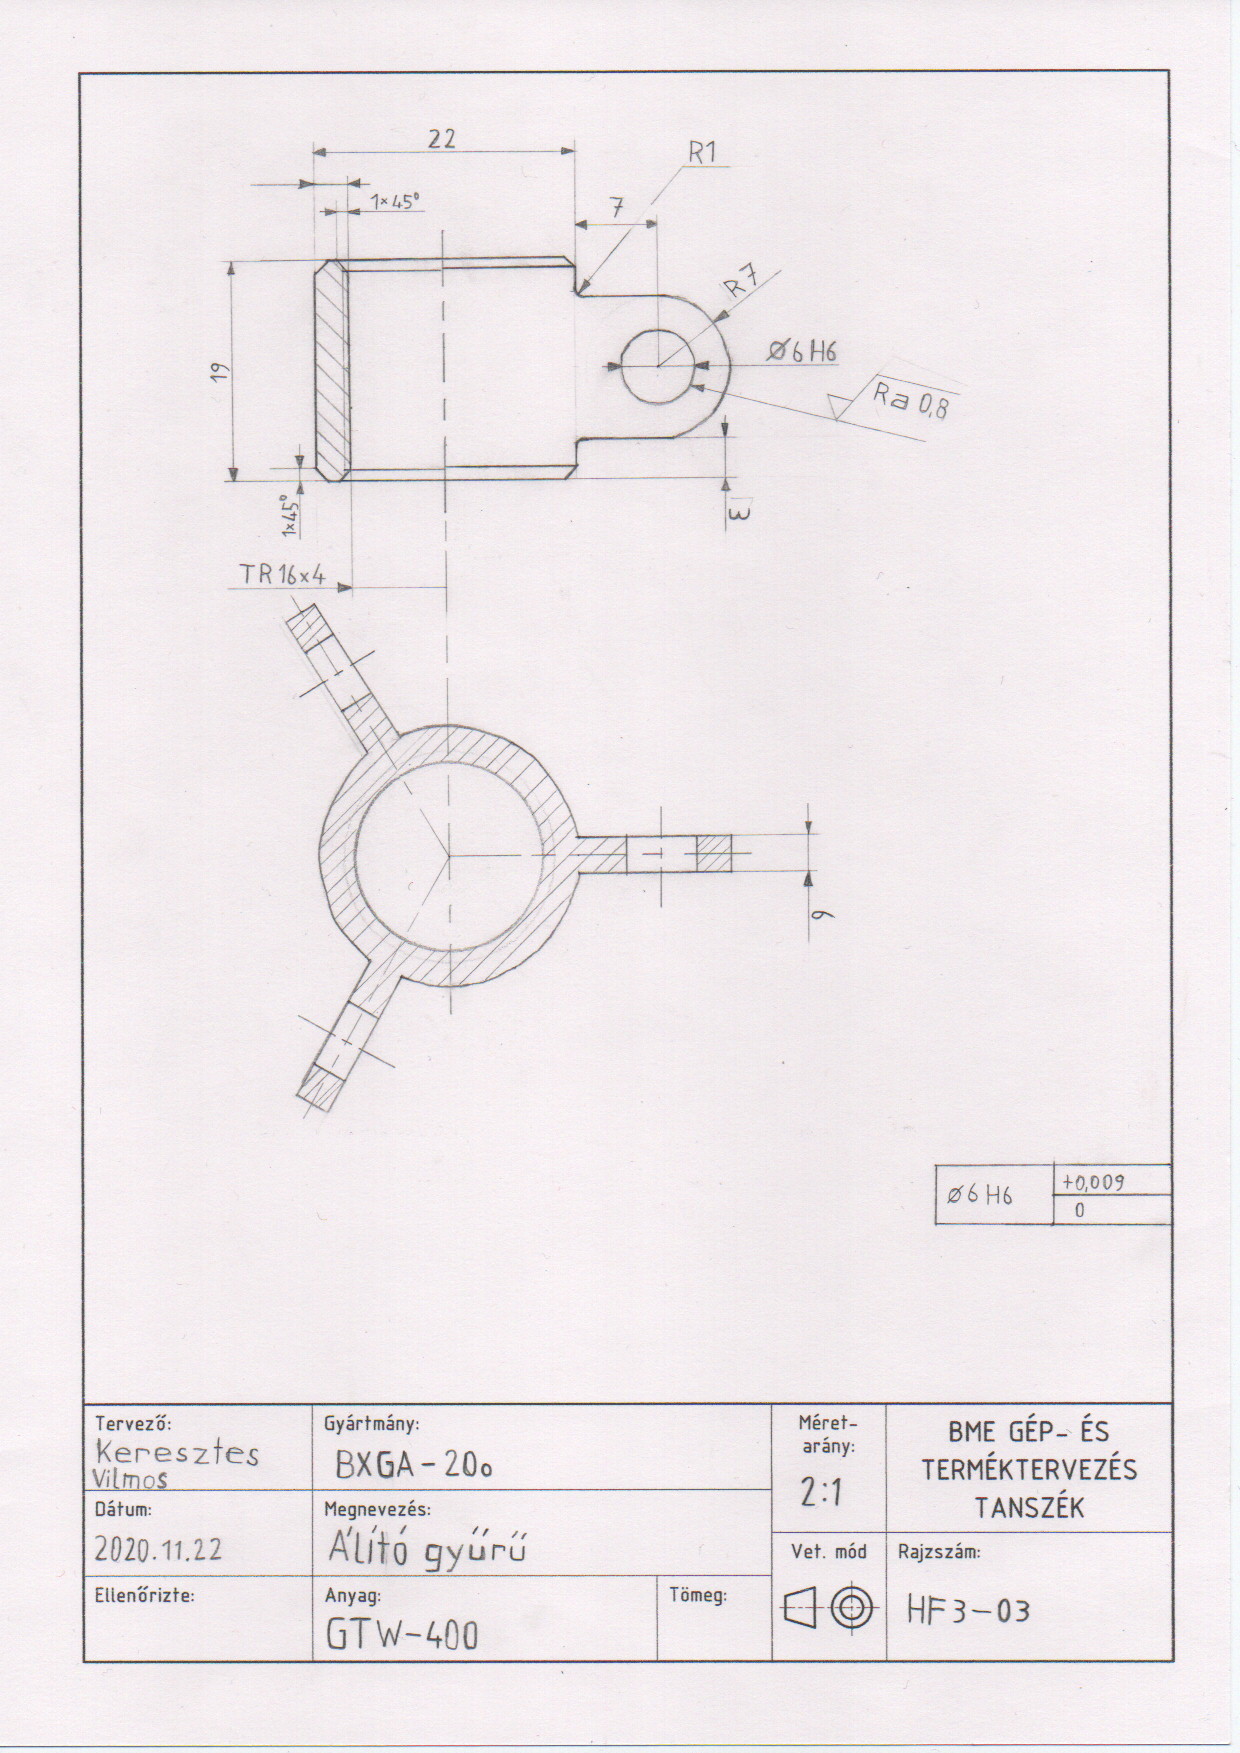 22
R1
1×45°
7
R7
19
Ø6H6
Ra 0,8
1×45°
3
TR16×4
6
Ø6H6
+0,009
0
Tervező:
Keresztes
Vilmos
Gyártmány:
BXGA-20o
Méret-
arány:
2:1
BME GÉP- ÉS
TERMÉKTERVEZÉS
TANSZÉK
Dátum:
2020.11.22
Megnevezés:
Álító gyűrű
Vet. mód
Rajzszám:
HF3-03
Ellenőrizte:
Anyag:
GTW-400
Tömeg: